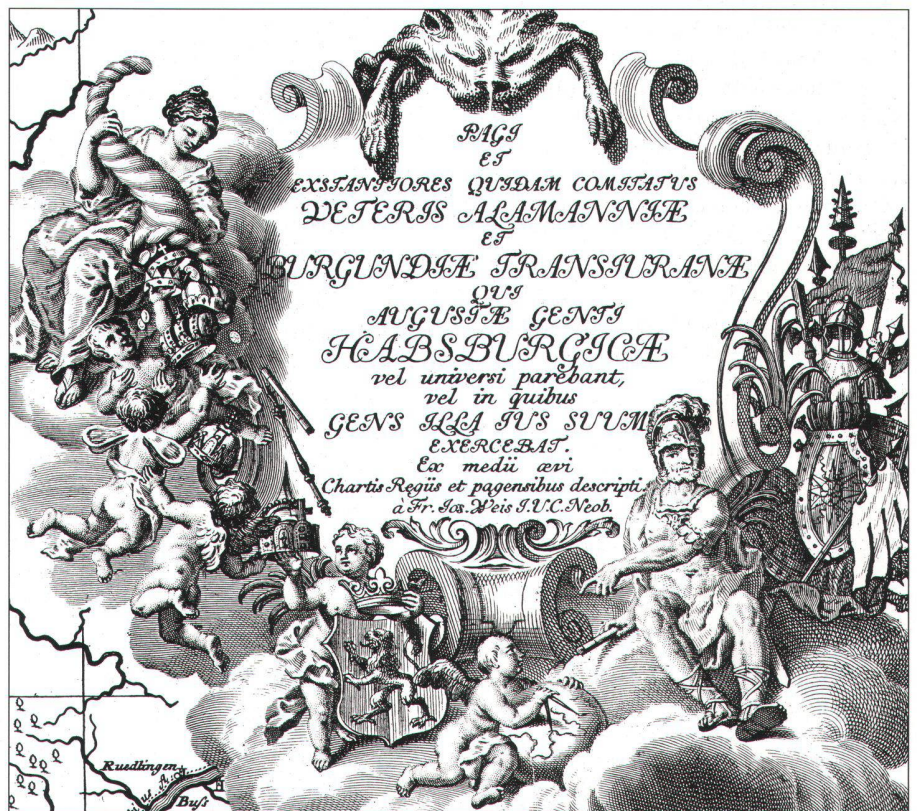 PAGI
ET
EXSTANTIORES QUIDAM COMITATUS
VETERIS ALAMANNIÆ
ET
BURGUNDIÆ TRANSIURANÆ
QUI
AUGUSTÆ GENTI
HABSBURGICÆ
vel universi parebant,
vel in quibus
GENS ILLA IUS SUUM
EXERCEBAT.
Ex medii ævi
Chartis Regiis et pagensibus descripti
à Fr. Jos. Weis I.U.C. Neob.
Ruedlingen
Buſs